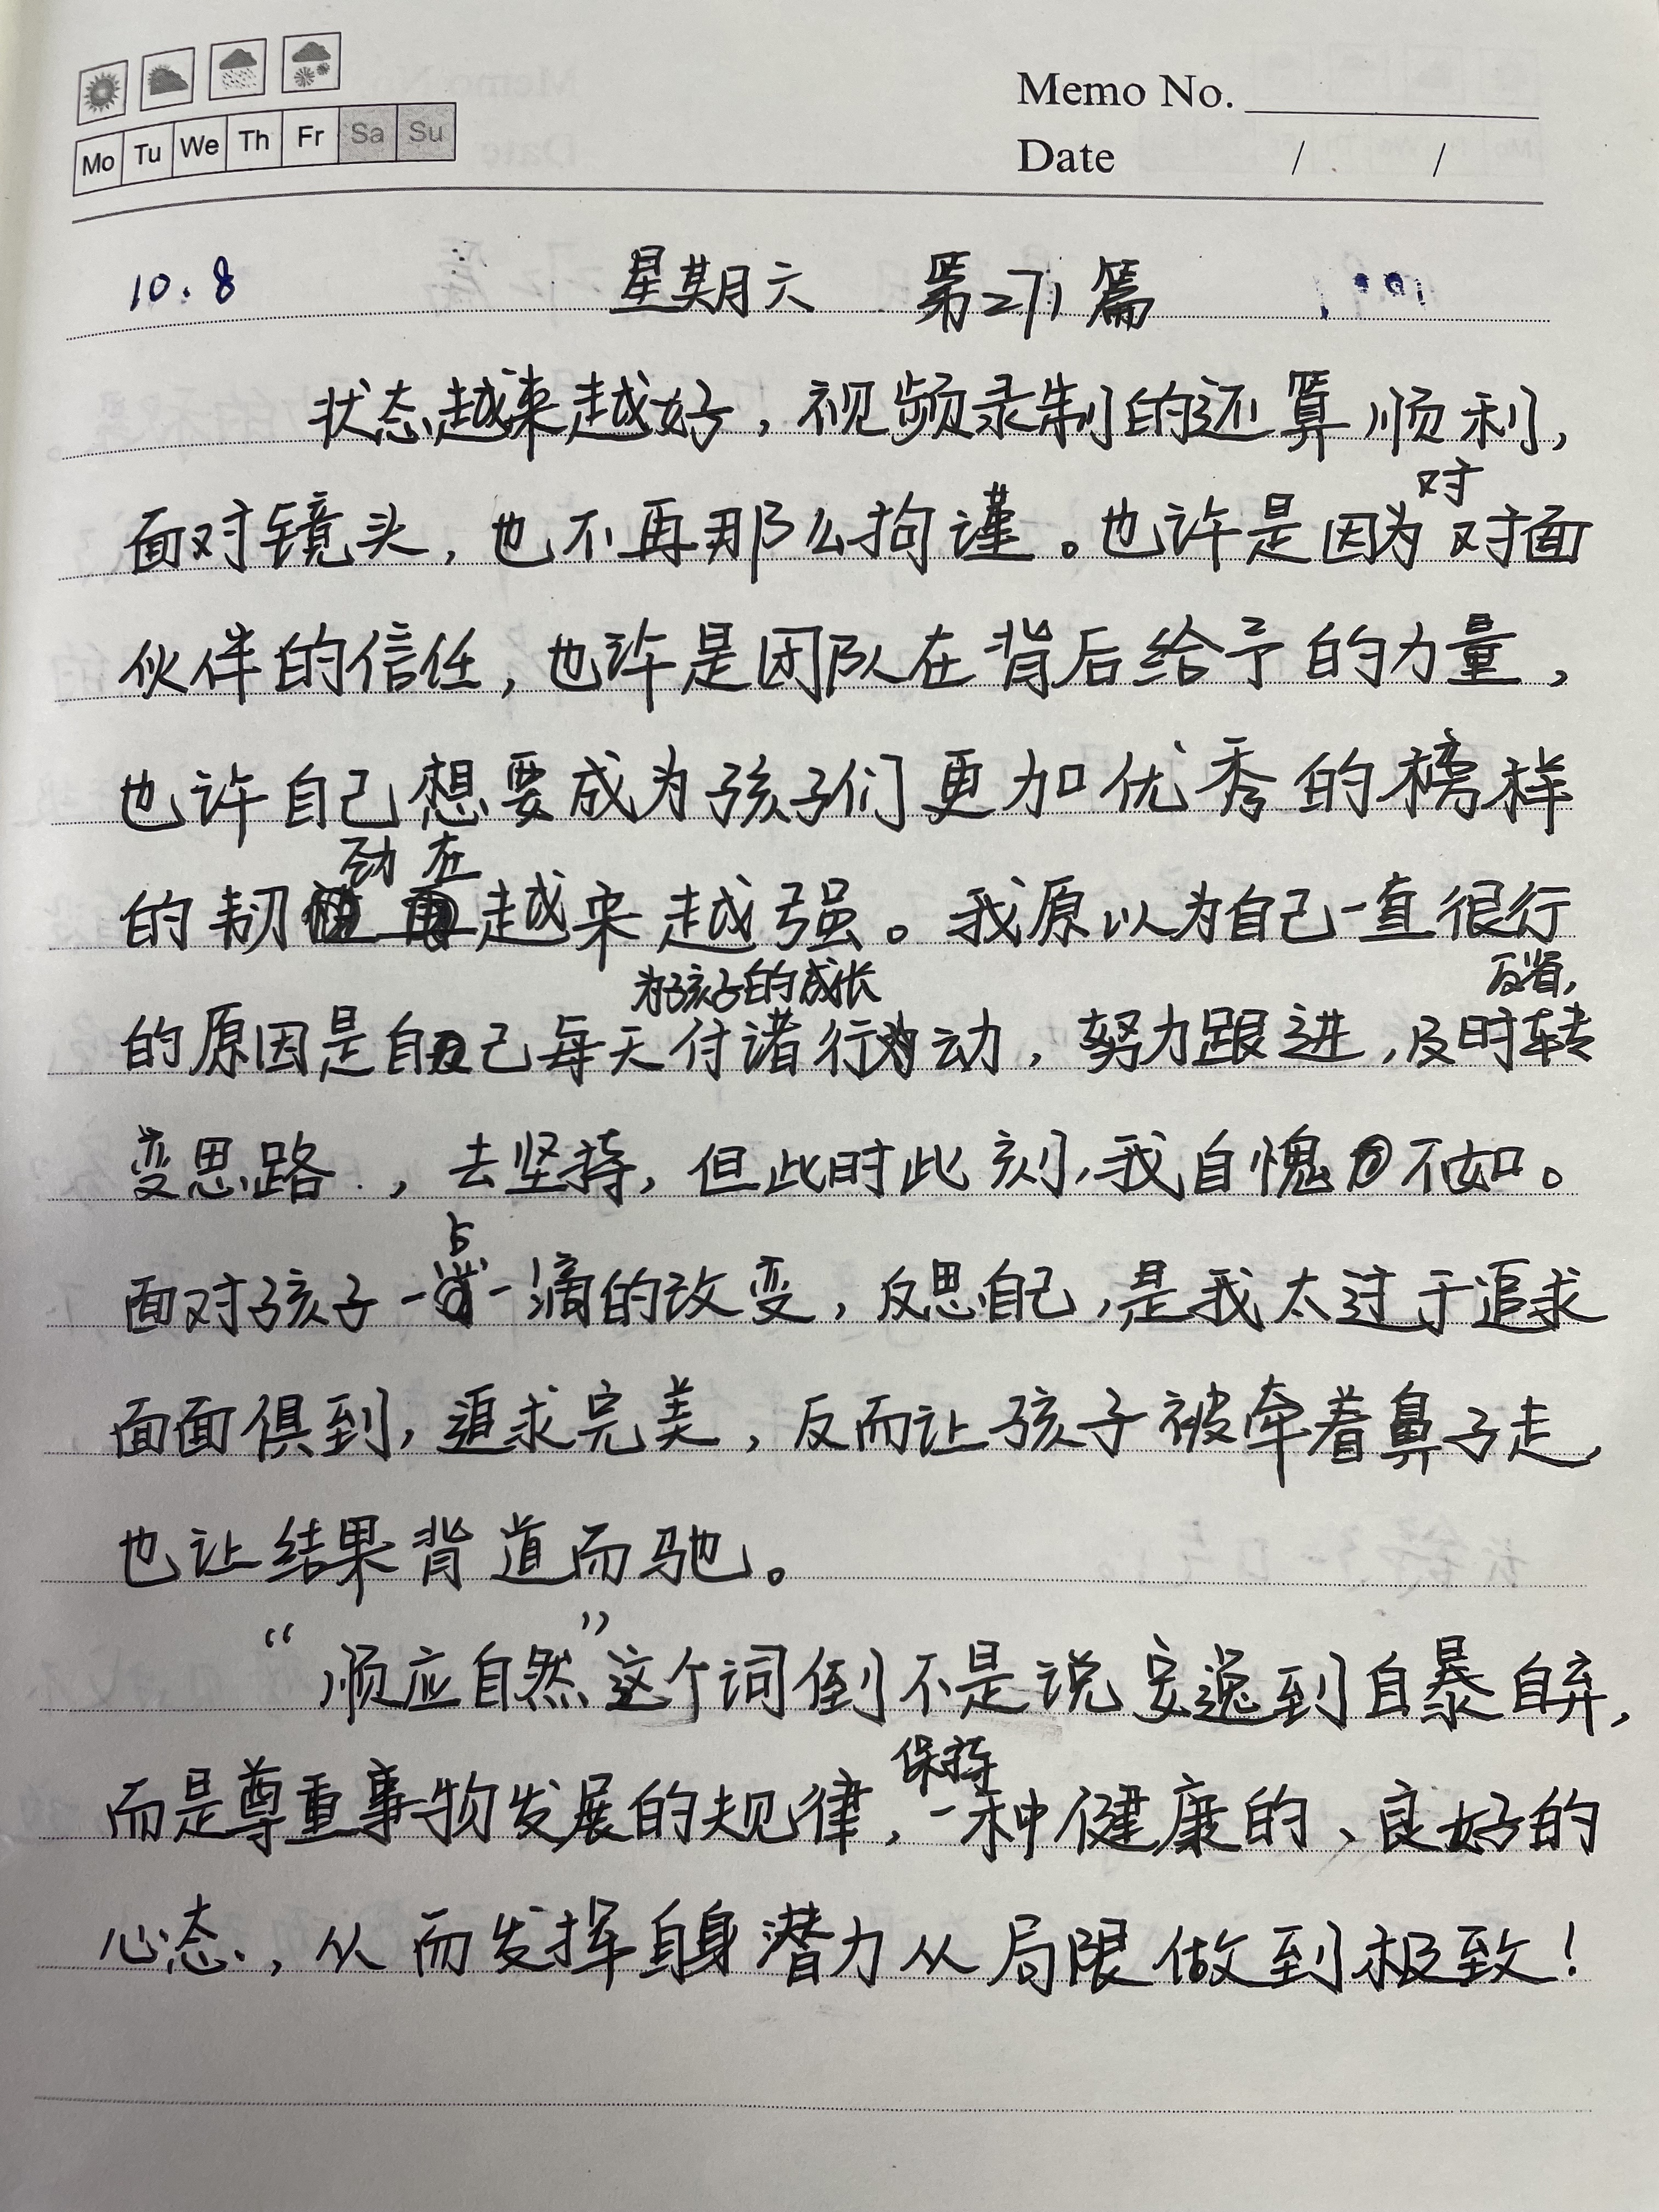 Memo No.
Mo Tu We Th Fr Sa Su
Date / /
10.8 星期六 第271篇
状态越来越好，视频录制的还算顺利，
对
面对镜头，也不再那么拘谨。也许是因为对面
伙伴的信任，也许是团队在背后给予的力量，
也许自己想要成为孩子们更加优秀的榜样
劲在
的韧越来越强。我原以为自己一直很行
为孩子的成长 反省，
的原因是自己每天付诸行动，努力跟进，及时转
变思路，去坚持，但此时此刻，我自愧不如。
点
面对孩子一一滴的改变，反思自己，是我太过于追求
面面俱到，追求完美，反而让孩子被牵着鼻子走，
也让结果背道而驰。
“顺应自然”这个词倒不是说安逸到自暴自弃，
保持
而是尊重事物发展的规律，一种健康的、良好的
心态，从而发挥自身潜力从局限做到极致！